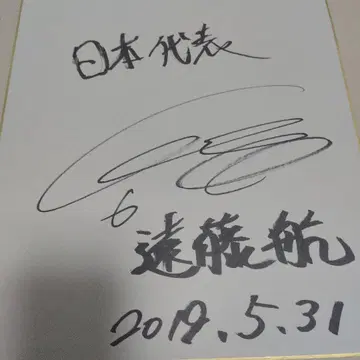 日本代表
6
遠藤航
2019.5.31